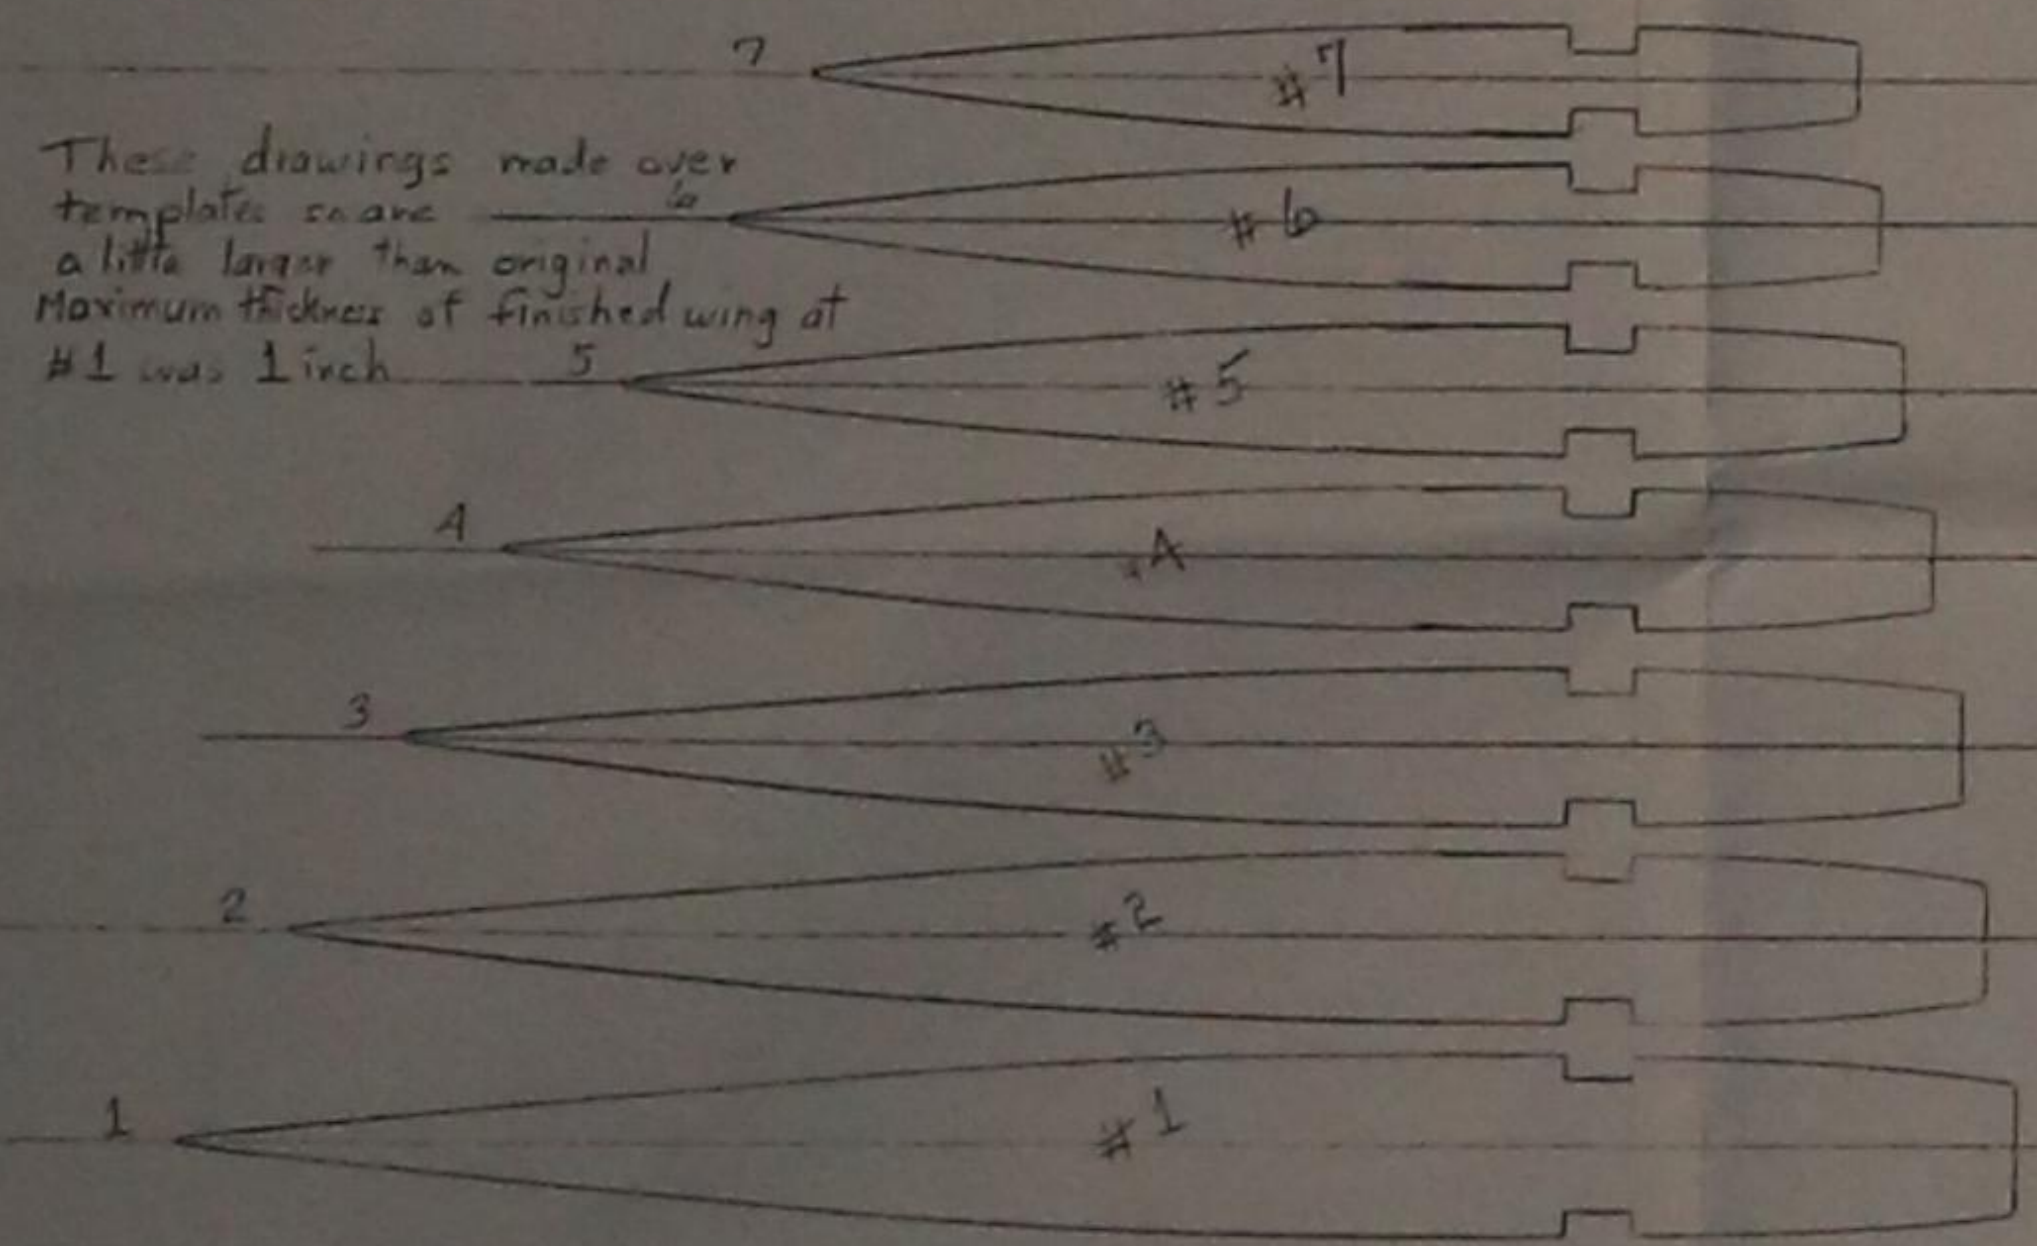 7
#7
These drawings made over
templates so are
6
#6
a little larger than original
Maximum thickness of finished wing at
#1 was 1 inch
5
#5
4
4
3
#3
2
#2
1
#1